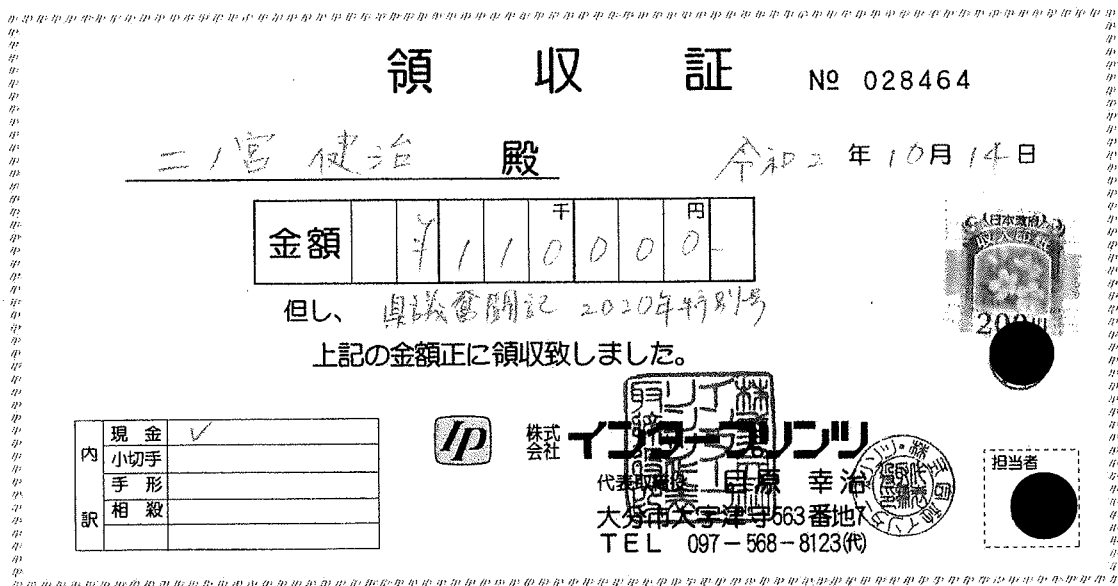 領収証 № 028464
二ノ宮 健治 殿 令和2年10月14日
金額 ¥110000-
千 円
但し、県議奮闘記 2020年特別号
上記の金額正に領収致しました。
日本政府
収入印紙
200円
内訳
現金 ✓
小切手
手形
相殺
IP 株式会社 インタープリンツ
代表取締役 原 幸治
大分市大字津守563番地7
TEL 097-568-8123(代)
担当者